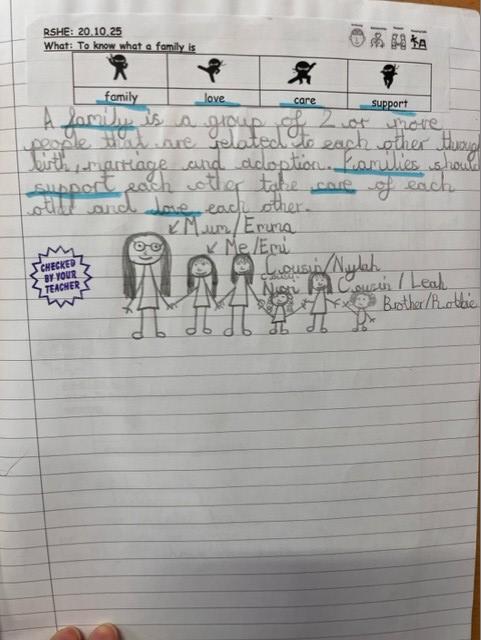 RSHE: 20.10.25
What: To know what a family is
family love care support
A family is a group of 2 or more
people that are related to each other throug
birth, marriage and adoption. Families should
support each other take care of each
other and love each other.
Mum/Emma
Me/Emi
Cousin/Nylah
Nan
Cousin/Leah
Brother/Robbie
CHECKED
BY YOUR
TEACHER